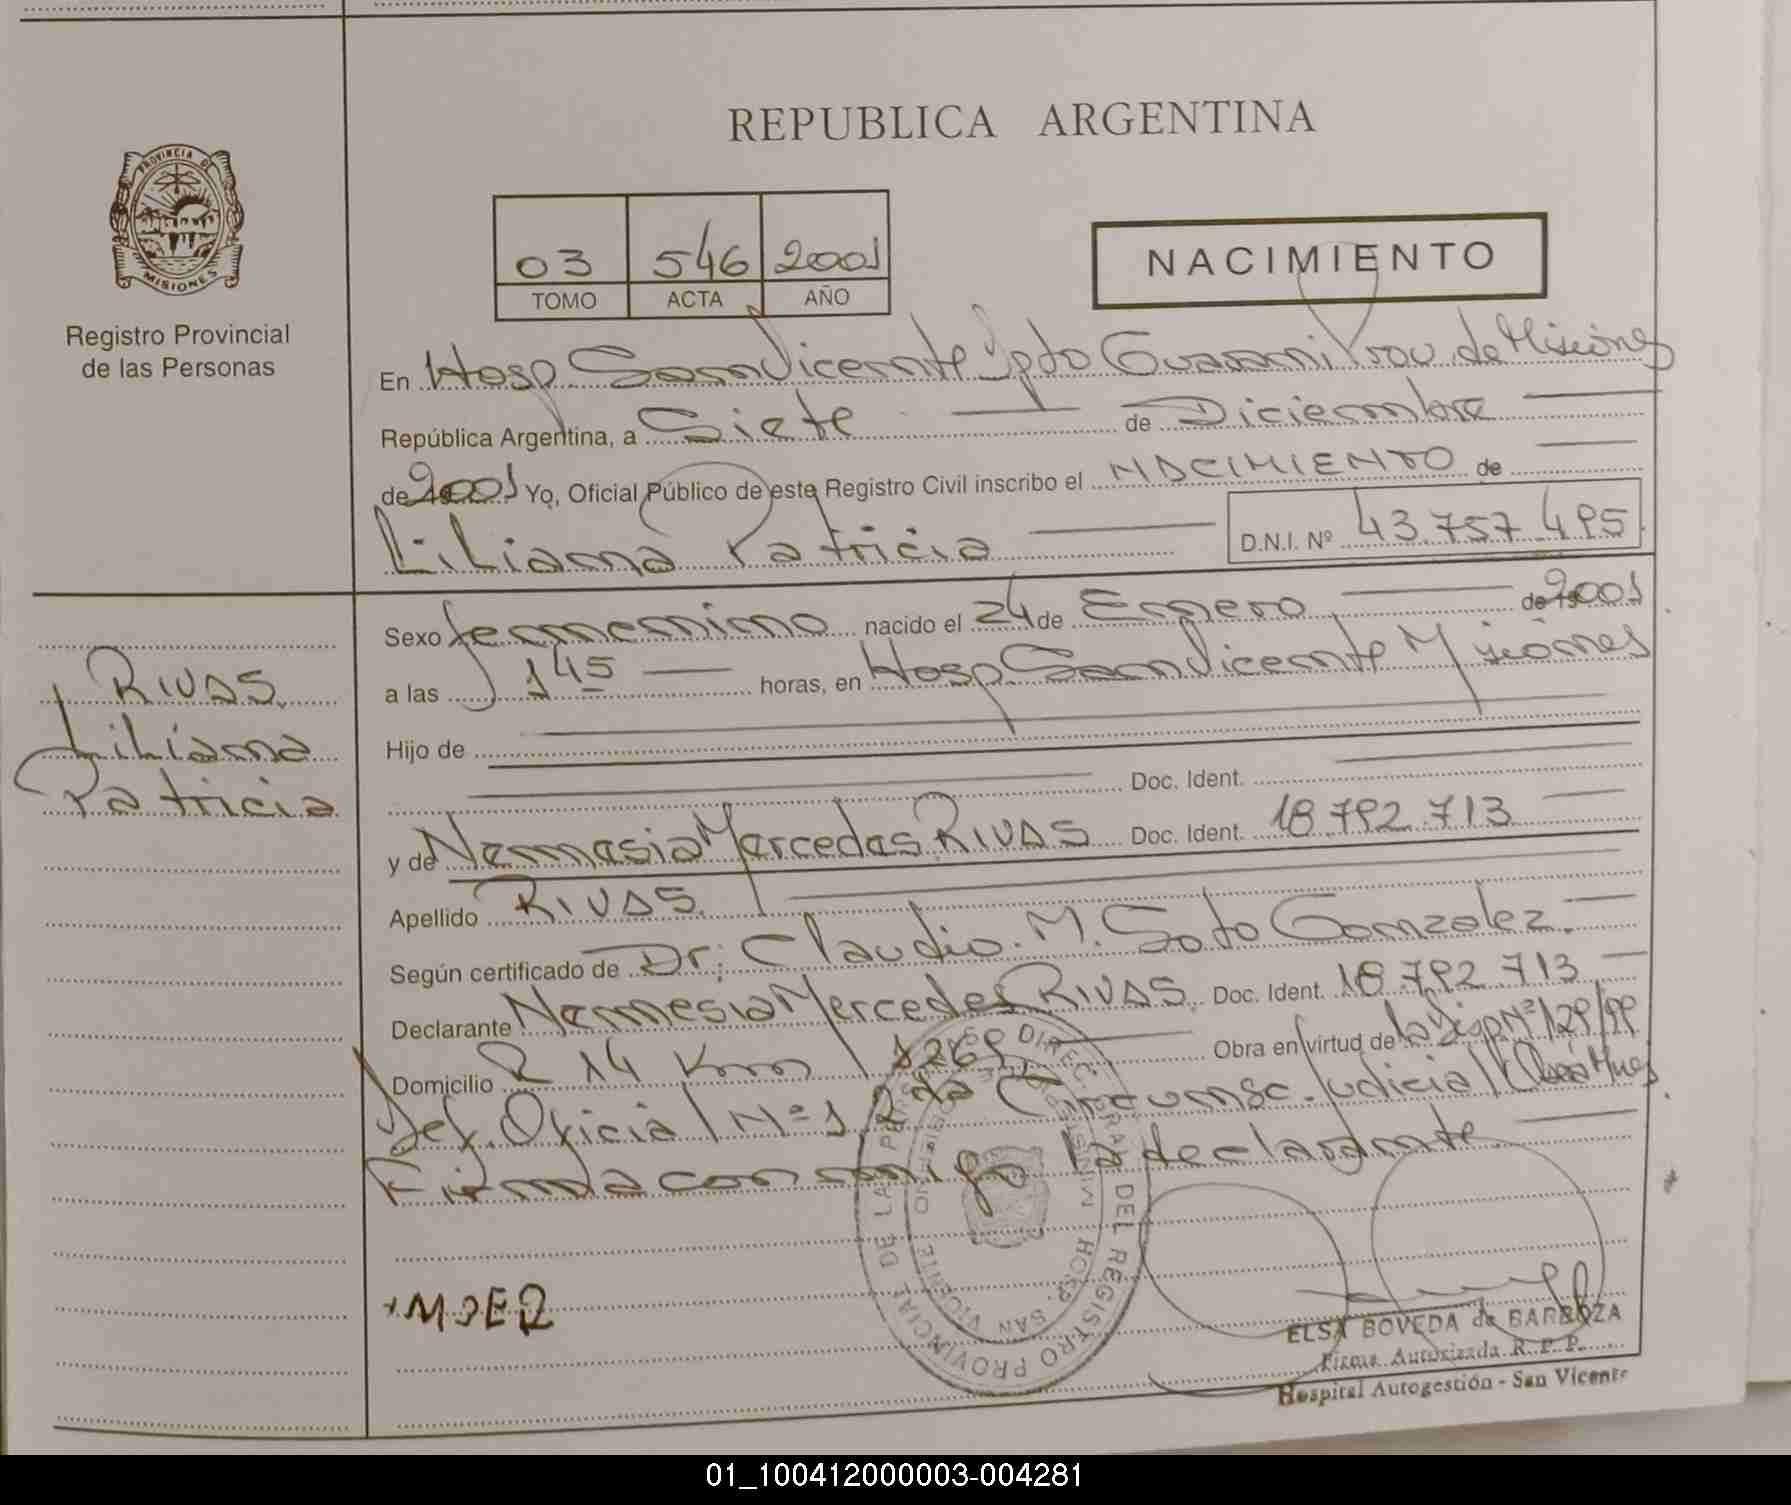 REPUBLICA ARGENTINA
PROVINCIA DE
MISIONES
Registro Provincial
de las Personas
03 546 2001
TOMO ACTA AÑO
NACIMIENTO
En Hosp San Vicente Dpto Guarani Prov. de Misiones
República Argentina, a Siete de Diciembre
de 2001 Yo, Oficial Público de este Registro Civil inscribo el NACIMIENTO de
Liliana Patricia D.N.I. Nº 43.757.495
Sexo femenino nacido el 24 de Enero de 2001
a las 1 45 horas, en Hosp San Vicente Misiones
Hijo de
Doc. Ident.
y de Nemesia Mercedes RIVAS Doc. Ident. 18.792.713
Apellido RIVAS
Según certificado de Dr: Claudio. M. Soto Gonzalez.
Declarante Nemesia Mercedes RIVAS Doc. Ident. 18.792.713
Domicilio R 14 Km 1269 Obra en virtud de la Disp Nº 129/99
Def. Oficial Nº 1 2da Circunsc. Judicial
Firma conmigo la declarante
RIVAS
Liliana
Patricia
DIREC. GRAL. DEL REGISTRO PROVINCIAL DE LAS PERS
HOSP. SAN VICENTE
MISIONES
ELSA BOVEDA de BARBOZA
Firma Autorizada R. P. P.
Hospital Autogestión - San Vicente
01_100412000003-004281